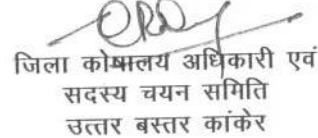 जिला कोषालय अधिकारी एवं
सदस्य चयन समिति
उत्तर बस्तर कांकेर